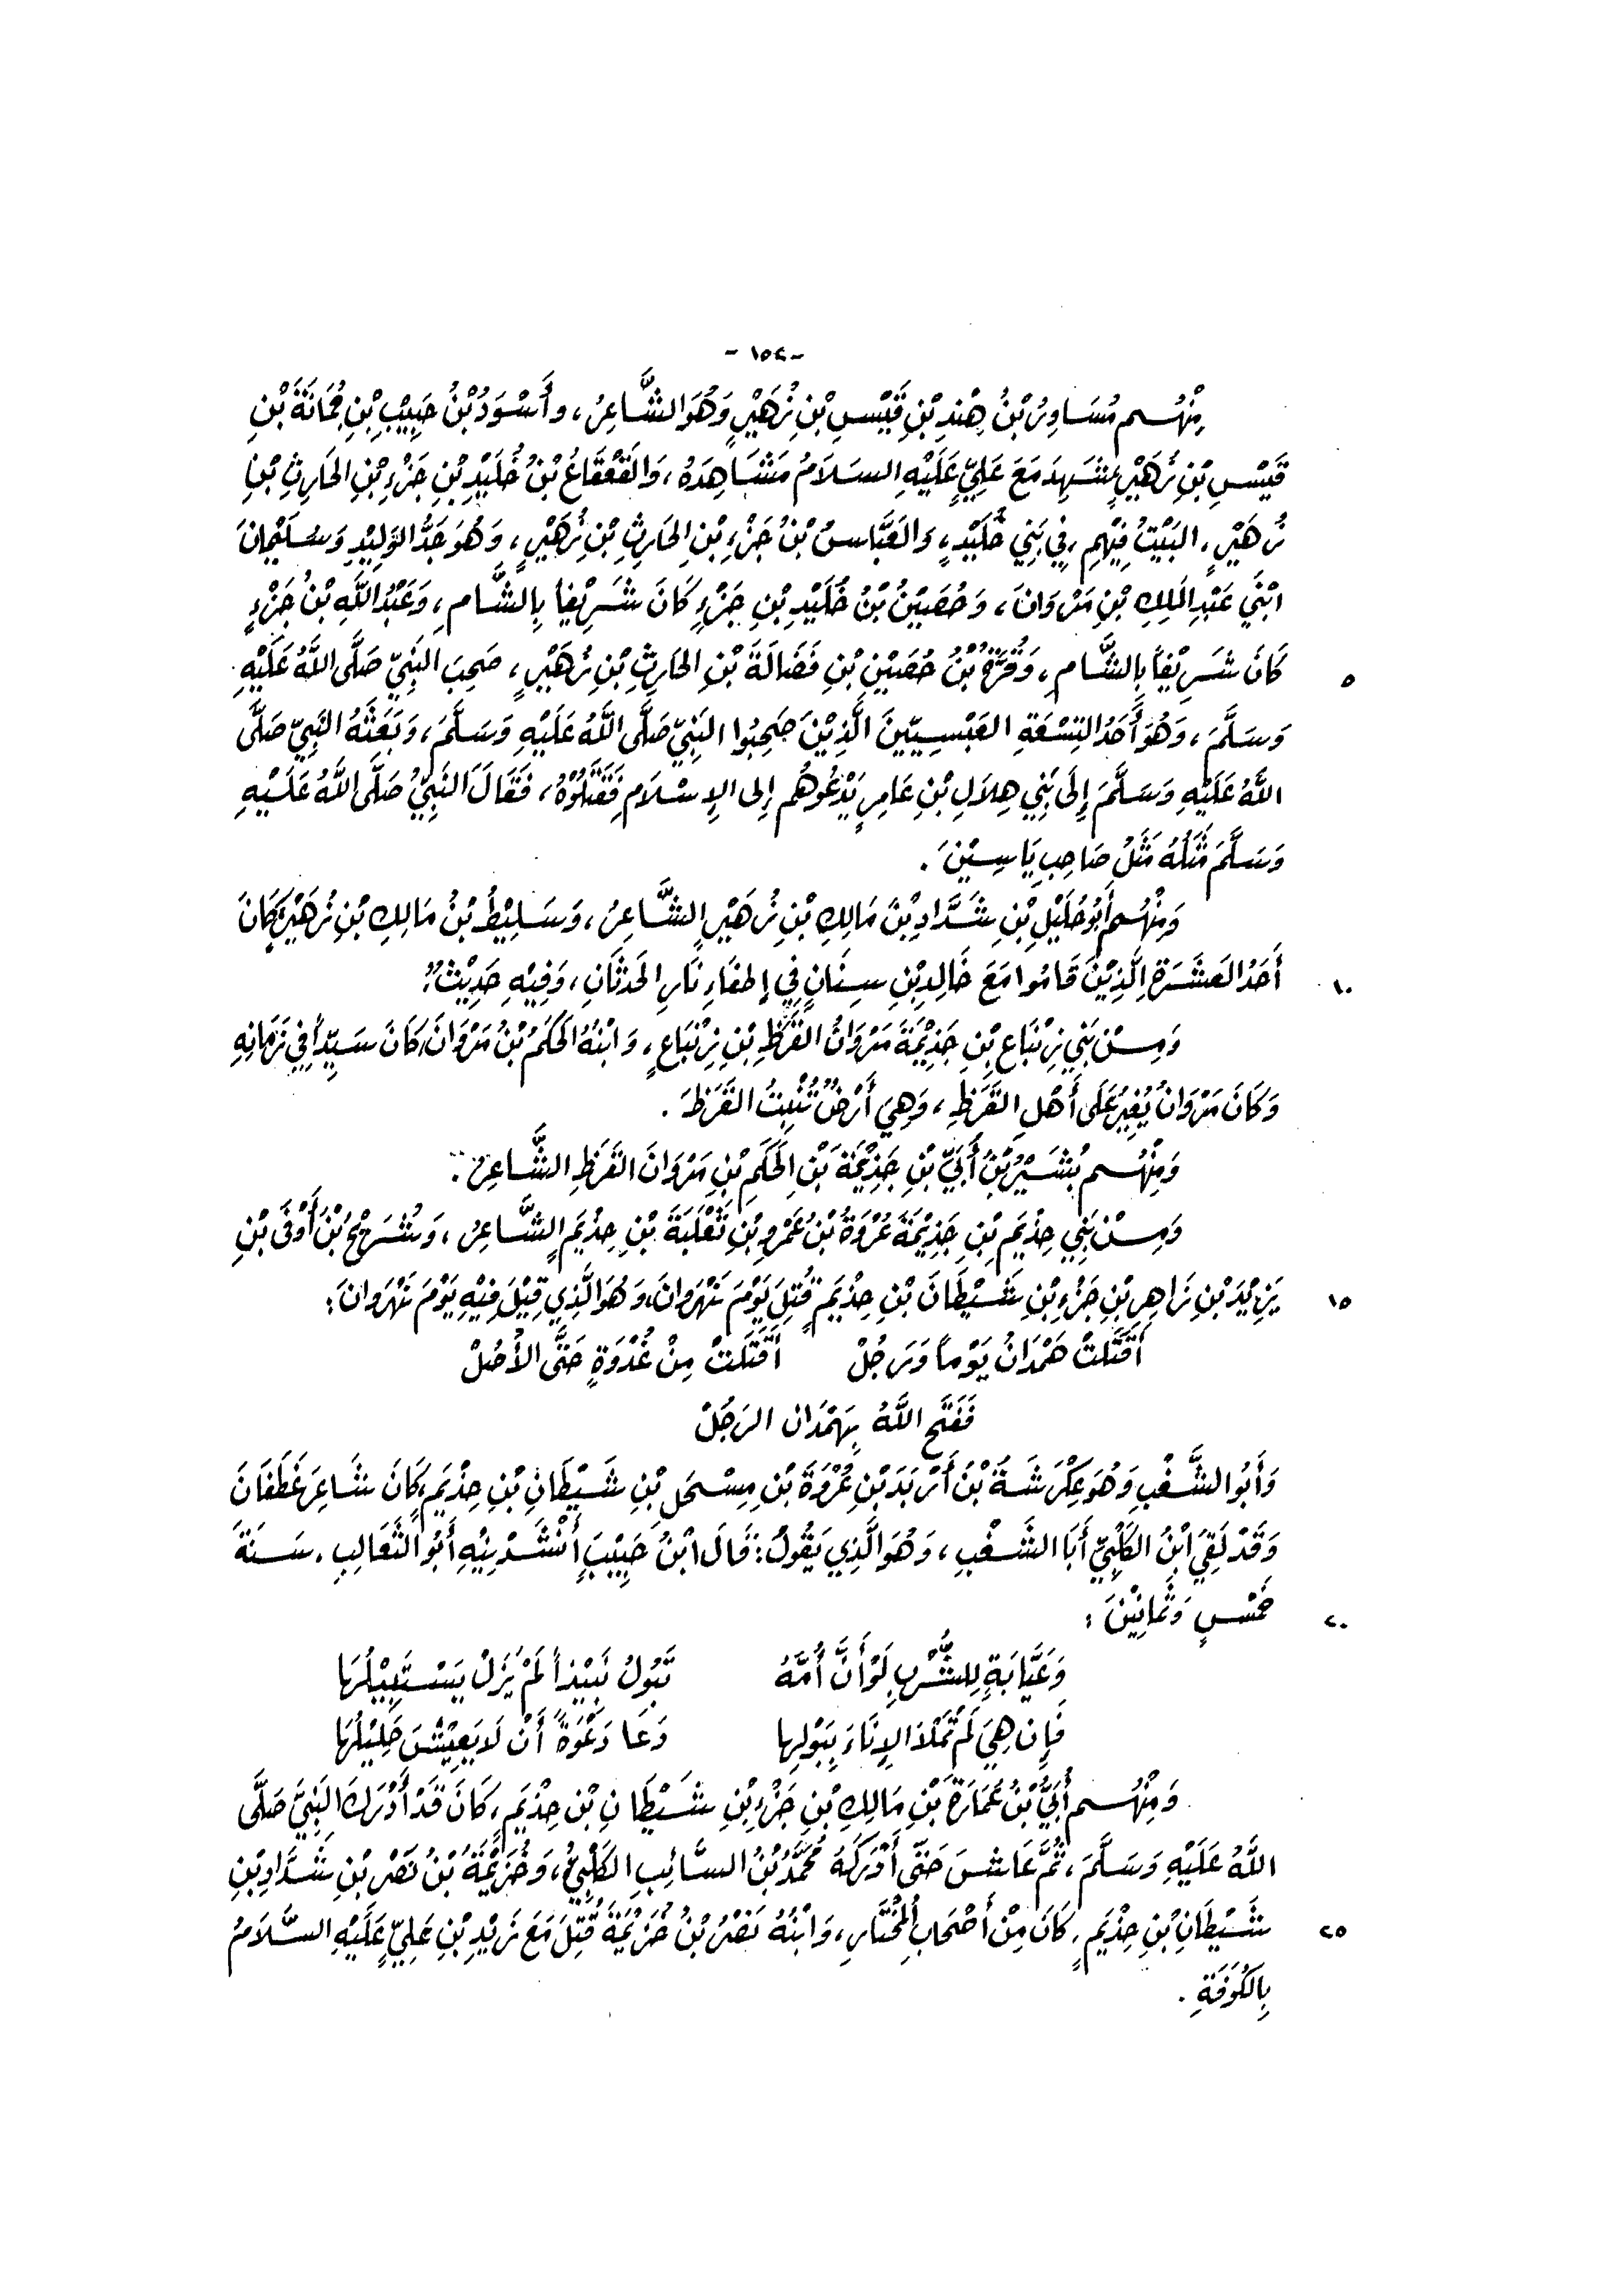 - ١٥٤ -
مِنْهُم مُسَاوِرُ بْنُ هِنْدِ بْنِ قَيْسِ بْنِ زُهَيْرٍ وَهُوَ الشَّاعِرُ، وأَسْوَدُ بْنُ حَبِيْبِ بْنِ جُمَانَةَ بْنِ
قَيْسِ بْنِ زُهَيْرٍ شَهِدَ مَعَ عَلِيٍّ عَلَيْهِ السَلَامُ مَشَاهِدَهُ، وَالقَعْقَاعُ بْنُ خُلَيْدِ بْنِ جَزْءِ بْنِ الحَارِثِ بْنِ
زُهَيْرٍ، البَيْتُ فِيْهِم، فِي بَنِي خُلَيْدٍ، وَالعَبَّاسُ بْنُ جَزْءِ بْنِ الحَارِثِ بْنِ زُهَيْرٍ، وَهُوَ جَدُّ الوَلِيْدِ وَسُلَيْمَانَ
ابْنَيْ عَبْدِ المَلِكِ بْنِ مَرْوَانَ، وَحُصَيْنُ بْنُ خُلَيْدِ بْنِ جَزْءٍ كَانَ شَرِيْفاً بِالشَّامِ، وَعَبْدُ اللَّهِ بْنُ جَزْءٍ
كَانَ شَرِيْفاً بِالشَّامِ، وَقُرَّةُ بْنُ حُصَيْنِ بْنِ فَضَالَةَ بْنِ الحَارِثِ بْنِ زُهَيْرٍ، صَحِبَ النَبِيَّ صَلَّى اللَّهُ عَلَيْهِ ٥
وَسَلَّمَ، وَهُوَ أَحَدُ التِسْعَةِ العَبْسِيِّينَ الَّذِيْنَ صَحِبُوا النَبِيَّ صَلَّى اللَّهُ عَلَيْهِ وَسَلَّمَ، وَبَعَثَهُ النَبِيُّ صَلَّى
اللَّهُ عَلَيْهِ وَسَلَّمَ إِلَى بَنِي هِلَالِ بْنِ عَامِرٍ يَدْعُوهُم إلى الإِسْلَامِ فَقَتَلُوْهُ، فَقَالَ النَبِيُّ صَلَّى اللَّهُ عَلَيْهِ
وَسَلَّمَ مَثَلُهُ مَثَلُ صَاحِبِ يَاسِيْنَ .
وَمِنْهُم أَبُو حُلَيْلِ بْنِ شَدَّادِ بْنِ مَالِكِ بْنِ زُهَيْرٍ الشَّاعِرُ، وَسَلِيْطُ بْنُ مَالِكِ بْنِ زُهَيْرٍ كَانَ
أَحَدُ العَشَرَةِ الَّذِيْنَ قَامُوا مَعَ خَالِدِ بْنِ سِنَانٍ فِي إطفَاءِ نَارِ الحَدَثَانِ، وَفِيْهِ حَدِيْثٌ؛ ١٠
وَمِنْ بَنِي زِنْبَاعِ بْنِ جَذِيْمَةَ مَرْوَانُ القَرَظِ بْنِ زِنْبَاعٍ، وَابْنُهُ الحَكَمُ بْنُ مَرْوَانَ، كَانَ سَيِّداً فِي زَمَانِهِ
وَكَانَ مَرْوَانُ يُغِيْرُ عَلَى أَهْلِ القَرَظِ، وَهِيَ أَرْضٌ تُنْبِتُ القَرَظَ .
وَمِنْهُم بُشَيْرُ بْنُ أُبَيِّ بْنِ جَذِيْمَةَ بْنِ الحَكَمِ بْنِ مَرْوَانَ القَرَظِ الشَّاعِرُ .
وَمِنْ بَنِي حِذْيَمِ بْنِ جَذِيْمَةَ عُرْوَةُ بْنُ عَمْرِو بْنِ ثَعْلَبَةَ بْنِ حِذْيَمٍ الشَّاعِرُ، وَشُرَيْحُ بْنُ أَوْفَى بْنِ
يَزِيْدَ بْنِ زَاهِرِ بْنِ جَزْءِ بْنِ شَيْطَانَ بْنِ حِذْيَمٍ قُتِلَ يَوْمَ نَهْرَوانَ، وَهُوَ الَّذِي قِيْلَ فِيْهِ يَوْمَ نَهْرَوانَ: ١٥
أَقْتَتَلَتْ هَمْدَانُ يَوْماً وَرَجُلْ أَقْتَتَلَتْ مِنْ غُدْوَةٍ حَتَّى الأُصُلْ
فَفَتَحَ اللَّهُ بِهَمْدَانَ الرَجُلْ
وَأَبُو الشَّغْبِ وَهُوَ عِكْرِشَةُ بْنُ أَرْبَدَ بْنِ عُرْوَةَ بْنِ مِسْحَلِ بْنِ شَيْطَانِ بْنِ حِذْيَمٍ كَانَ شَاعِرَ غَطَفَانَ
وَقَدْ لَقِيَ ابْنُ الكَلْبِيِّ أَبَا الشَغْبِ، وَهُوَ الَّذِي يَقُولُ: قَالَ ابْنُ حَبِيْبَ أَنْشَدَنِيْهِ أَبُو الثَّعَالِبِ، سَنَةَ
خَمْسٍ وَثَمَانِيْنَ : ٢٠
وَعَيَّابَةٍ لِلشُّرْبِ لَوْ أَنَّ أُمَّهُ تَبُولُ نَبِيْذاً لَمْ يَزَلْ يَسْتَبِيْلُهَا
فَإِن هِيَ لَمْ تَمْلَا الإِنَاءَ بِبَوْلِها دَعَا دَعْوَةً أَنْ لَا يَعِيْشَ خَلِيْلُهَا
وَمِنْهُم أُبَيُّ بْنُ عُمَارَةَ بْنِ مَالِكِ بْنِ جَزْءِ بْنِ شَيْطَانِ بْنِ حِذْيَمٍ، كَانَ قَدْ أَدْرَكَ النَبِيَّ صَلَّى
اللَّهُ عَلَيْهِ وَسَلَّمَ، ثُمَّ عَاشَ حَتَّى أَدْرَكَهُ مُحَمَّدُ بْنُ السَّائِبِ الكَلْبِيُّ، وَخُزَيْمَةُ بْنُ نَصْرِ بْنِ شَدَّادِ بْنِ
شَيْطَانِ بْنِ حِذْيَمٍ، كَانَ مِنْ أَصْحَابِ المُخْتَارِ، وَابْنُهُ نَصْرُ بْنُ خُزَيْمَةَ قُتِلَ مَعَ زَيْدِ بْنِ عَلِيٍّ عَلَيْهِ السَّلَامُ ٢٥
بِالكُوفَةِ .